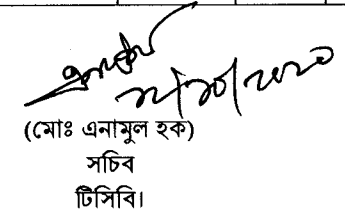 (মোঃ এনামুল হক)
সচিব
টিসিবি।